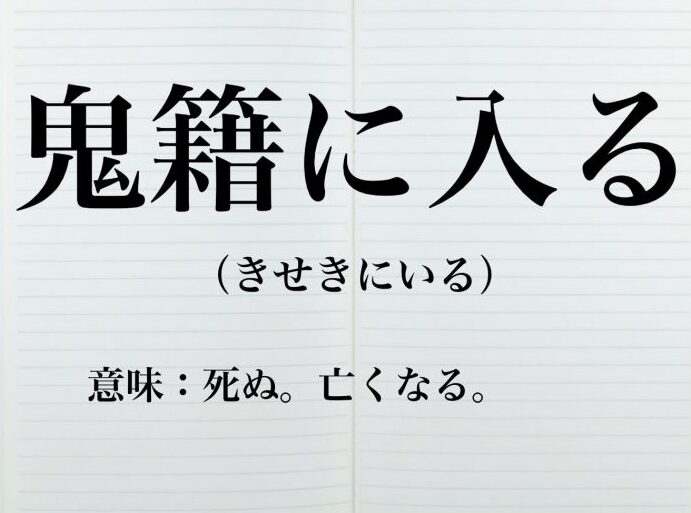 鬼籍に入る
（きせきにいる）
意味：死ぬ。亡くなる。